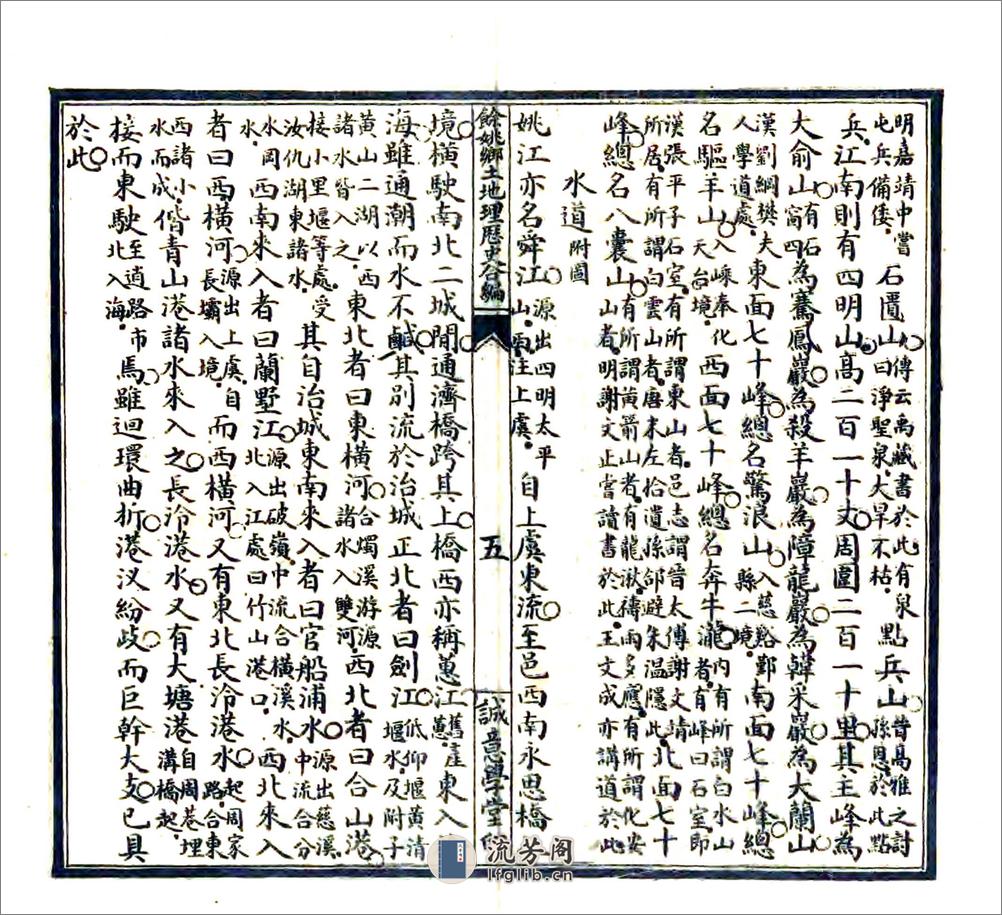 明嘉靖中嘗屯兵備倭 石匱山傳云禹藏書於此有泉曰淨聖泉大旱不枯 點兵山昔高雅之討孫恩於此點
兵江南則有四明山高二百一十丈周圍二百一十里其主峰為
大俞山有石窗四為騫鳳巖為殺羊巖為障龍巖為韓采巖為大蘭山
漢劉綱樊夫人學道處 東面七十峰總名驚浪山入慈谿鄞縣二境 南面七十峰總
名驅羊山入嵊奉化天台境 西面七十峰總名奔牛瀧內有所謂白水山者有峰曰石室即
漢張平子石室有所謂東山者邑志謂晉太傅謝文靖所居有所謂白雲山者唐末左拾遺孫郃避朱溫隱此 北面七十
峰總名八囊山有所謂黃箭山者有龍湫禱雨多應有所謂化安山者明謝文正嘗讀書於此王文成亦講道於此
水道附圖
姚江亦名舜江源出四明太平山再注上虞 自上虞東流至邑西南永思橋
餘姚鄉土地理歷史合編
五
誠意學堂
境橫駛南北二城間通濟橋跨其上橋西亦稱蕙江舊產蕙 東入
海雖通潮而水不鹹其別流於治城正北者曰劍江低仰堰黃清堰水及附子
黃山二湖以西諸水皆入之 東北者曰東橫河合燭溪游源諸水入雙河 西北者曰合山港
接小里堰等處受汝仇湖東諸水 其自治城東南來入者曰官船浦水源出慈溪中流合分
水岡水 西南來入者曰蘭墅江源出破嶺中流合橫溪水北入江處曰竹山港口 西北來入
者曰西橫河源出上虞自長壩入境 而西橫河又有東北長泠港水起周家路合東
西諸小水而成 偕青山港諸水來入之長泠港水又有大塘港自周巷埋溝橋起
接而東駛至道路市北入海 焉雖迴環曲折港汊紛歧而巨幹大支已具
於此
流芳阁
lfglib.cn